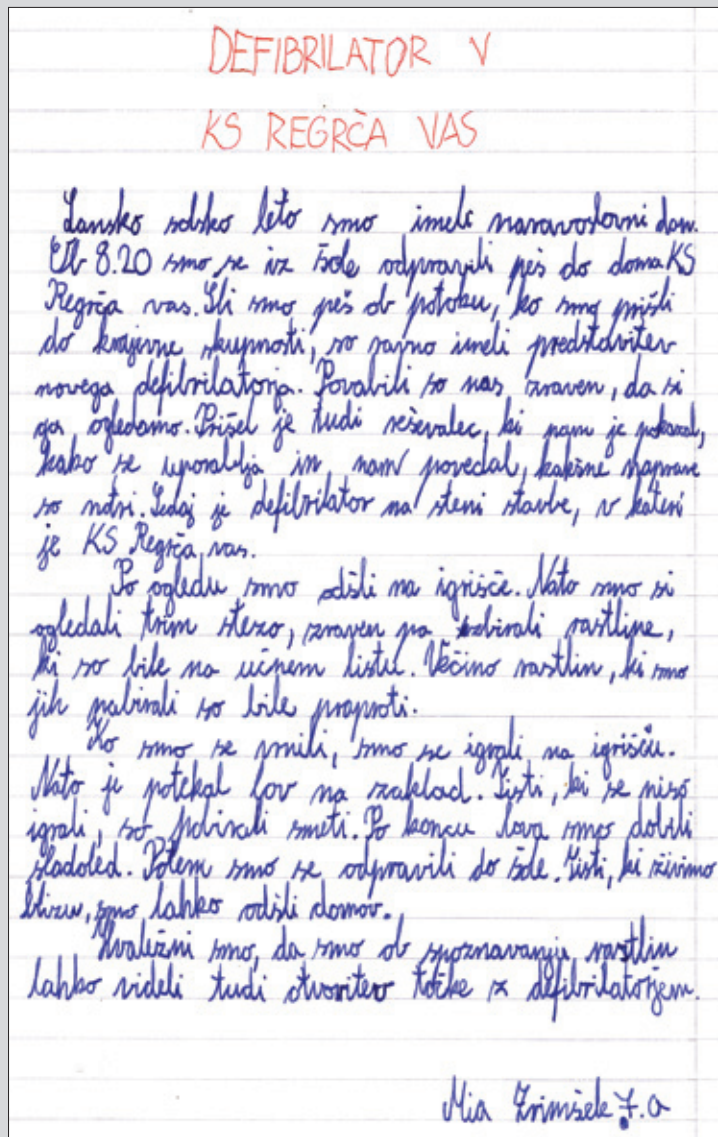 DEFIBRILATOR V
KS REGRČA VAS
Lansko šolsko leto smo imeli naravoslovni dan.
Ob 8.20 smo se iz šole odpravili peš do doma KS
Regrča vas. Šli smo peš ob potoku, ko smo prišli
do krajevne skupnosti, so ravno imeli predstavitev
novega defibrilatorja. Povabili so nas zraven, da si
ga ogledamo. Prišel je tudi reševalec, ki nam je pokazal,
kako se uporablja in nam povedal, kakšne naprave
so notri. Sedaj je defibrilator na steni stavbe, v kateri
je KS Regrča vas.
Po ogledu smo odšli na igrišče. Nato smo si
ogledali trim stezo, zraven pa nabirali rastline,
ki so bile na učnem listu. Večino rastlin, ki smo
jih nabirali so bile praproti.
Ko smo se vrnili, smo se igrali na igrišču.
Nato je potekal lov na zaklad. Tisti, ki se niso
igrali, so pobirali smeti. Po koncu lova smo dobili
sladoled. Potem smo se odpravili do šole. Tisti, ki živimo
blizu, smo lahko odšli domov.
Hvaležni smo, da smo ob spoznavanju rastlin
lahko videli tudi otvoritev točke z defibrilatorjem.
Mia Zrimšek 7. a